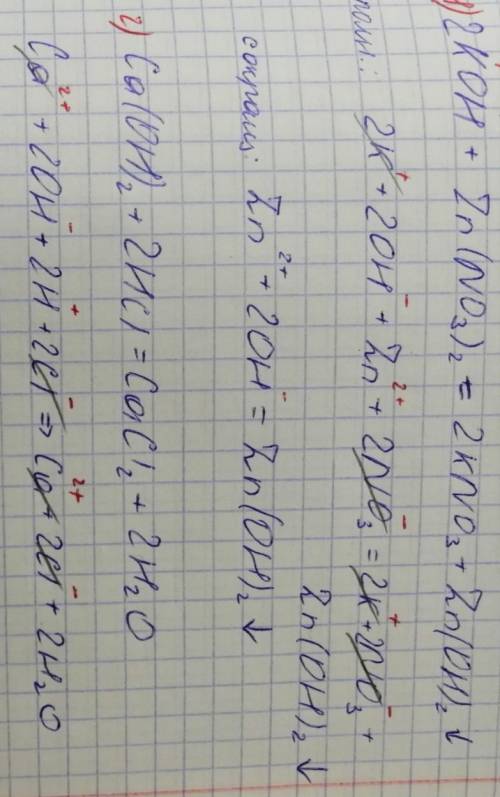 2KOH + Zn(NO₃)₂ = 2KNO₃ + Zn(OH)₂↓
полн.: 2K⁺ + 2OH⁻ + Zn²⁺ + 2NO₃⁻ = 2K⁺ + 2NO₃⁻ +
Zn(OH)₂↓
сокращ: Zn²⁺ + 2OH⁻ = Zn(OH)₂↓
2) Ca(OH)₂ + 2HCl = CaCl₂ + 2H₂O
Ca²⁺ + 2OH⁻ + 2H⁺ + 2Cl⁻ => Ca²⁺ + 2Cl⁻ + 2H₂O